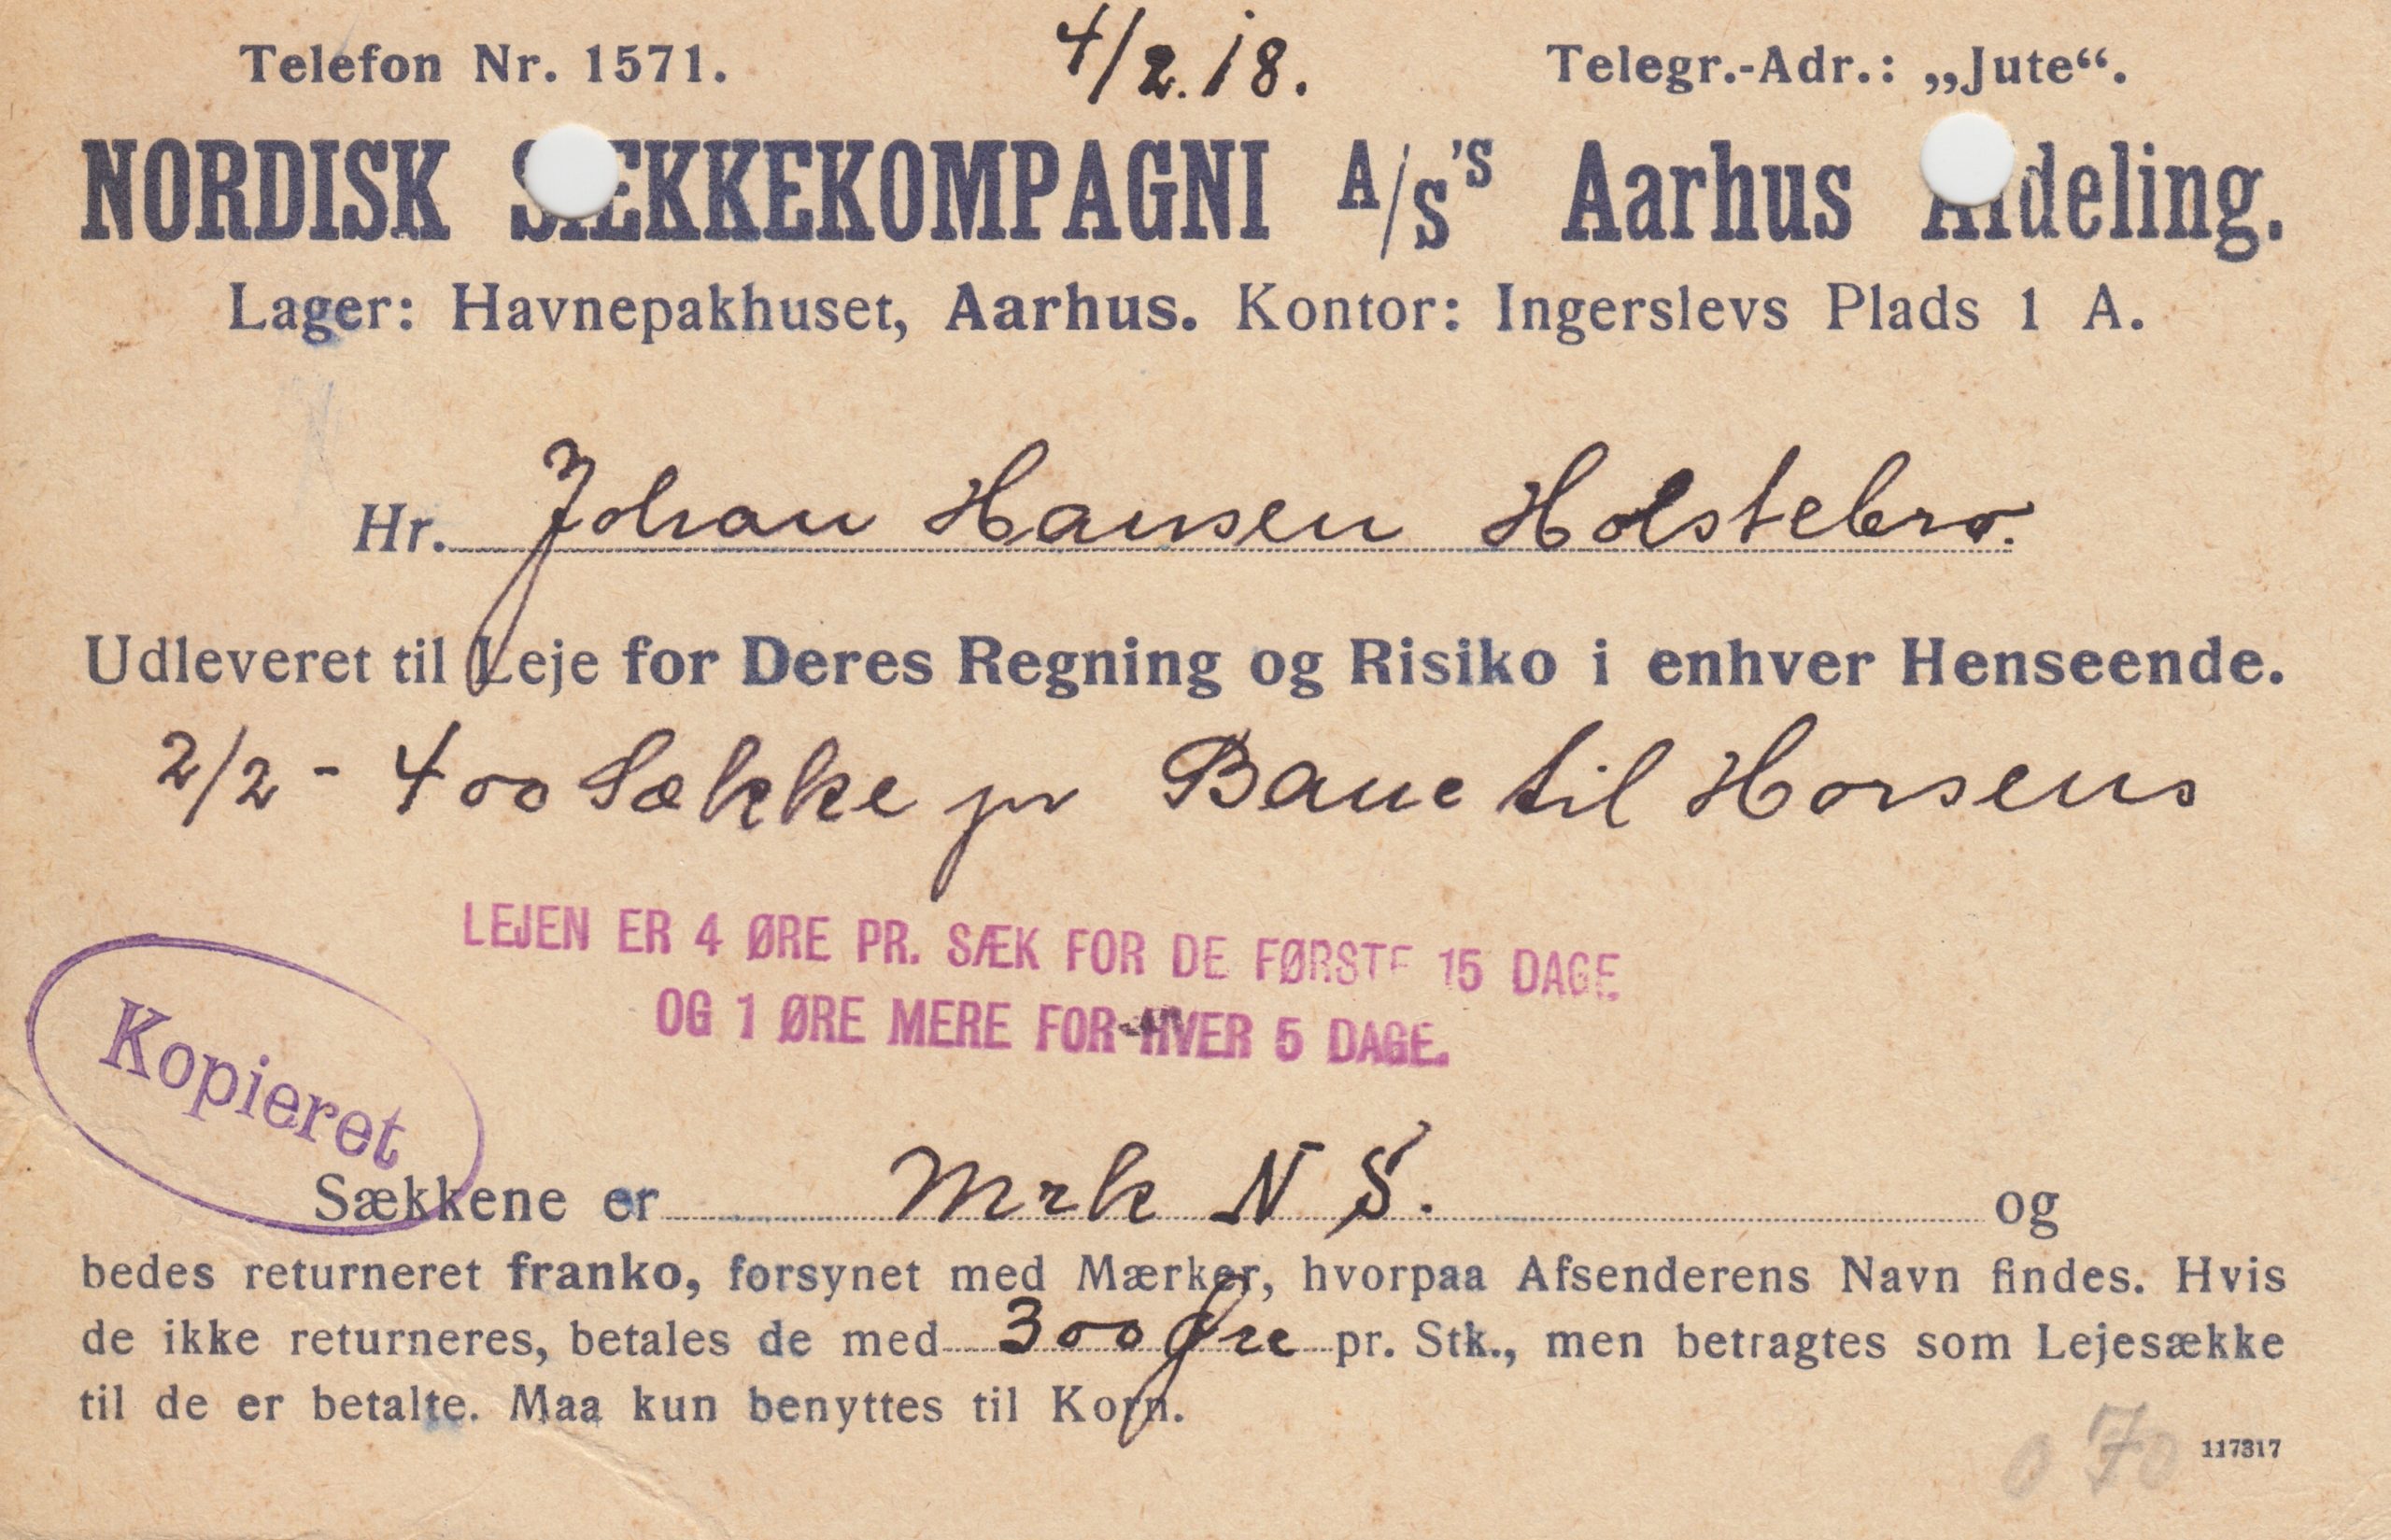 Telefon Nr. 1571.
4/2.18.
Telegr.-Adr.: „Jute“.
NORDISK SÆKKEKOMPAGNI A/S's Aarhus Afdeling.
Lager: Havnepakhuset, Aarhus. Kontor: Ingerslevs Plads 1 A.
Hr. Johan Hansen Holstebro.
Udleveret til Leje for Deres Regning og Risiko i enhver Henseende.
2/2 - 400 Sække pr Bane til Horsens
LEJEN ER 4 ØRE PR. SÆK FOR DE FØRSTE 15 DAGE
OG 1 ØRE MERE FOR HVER 5 DAGE.
Kopieret
Sækkene er Mrk N S. og
bedes returneret franko, forsynet med Mærker, hvorpaa Afsenderens Navn findes. Hvis
de ikke returneres, betales de med 300 Øre pr. Stk., men betragtes som Lejesække
til de er betalte. Maa kun benyttes til Korn.
70
117317